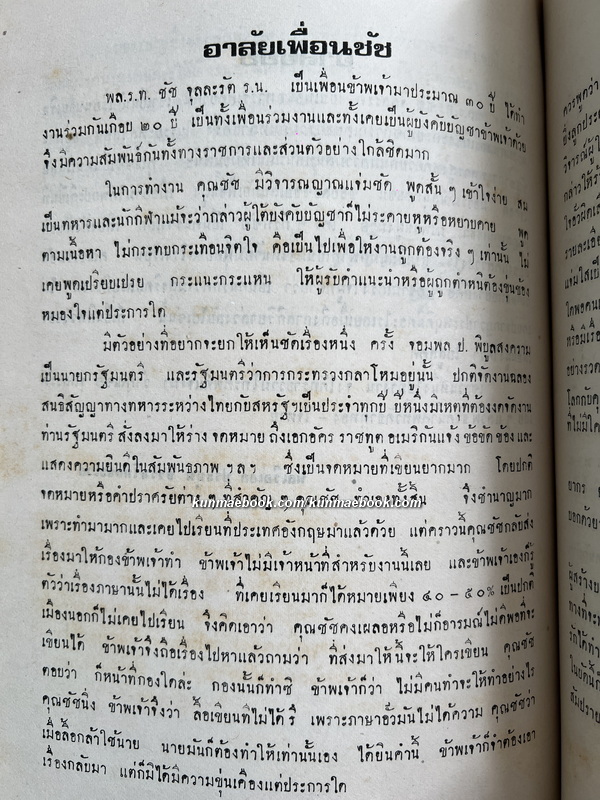 อาลัยเพื่อนชัช
พล.ร.ท. ชัช จุลละรัต ร.น. เป็นเพื่อนข้าพเจ้ามาประมาณ ๓๐ ปี ได้ทำ
งานร่วมกันเกือบ ๒๐ ปี เป็นทั้งเพื่อนร่วมงานและทั้งเคยเป็นผู้บังคับบัญชาข้าพเจ้าด้วย
จึงมีความสัมพันธ์กันทั้งทางราชการและส่วนตัวอย่างใกล้ชิดมาก
ในการทำงาน คุณชัช มีวิจารณญาณแจ่มชัด พูดสั้น ๆ เข้าใจง่าย สม
เป็นทหารและนักกีฬาแม้จะว่ากล่าวผู้ใต้บังคับบัญชาก็ไม่ระคายหูหรือหยาบคาย พูด
ตามเนื้อหา ไม่กระทบกระเทือนจิตใจ คือเป็นไปเพื่อให้งานถูกต้องจริง ๆ เท่านั้น ไม่
เคยพูดเปรียบเปรย กระแนะกระแหน ให้ผู้รับคำแนะนำหรือผู้ถูกตำหนิต้องขุ่นข้อง
หมองใจแต่ประการใด
มีตัวอย่างที่อยากจะยกให้เห็นชัดเรื่องหนึ่ง ครั้ง จอมพล ป. พิบูลสงคราม
เป็นนายกรัฐมนตรี และรัฐมนตรีว่าการกระทรวงกลาโหมอยู่นั้น ปกติจัดงานฉลอง
สนธิสัญญาทางทหารระหว่างไทยกับสหรัฐฯเป็นประจำทุกปี ปีหนึ่งมีเหตุที่ต้องงดจัดงาน
ท่านรัฐมนตรี สั่งลงมาให้ร่าง จดหมาย ถึงเอกอัคร ราชทูต อเมริกันแจ้ง ข้อขัด ข้องและ
แสดงความยินดีในสัมพันธภาพ ฯลฯ ซึ่งเป็นจดหมายที่เขียนยากมาก โดยปกติ
จดหมายหรือคำปราศรัยต่าง ๆ ที่สำคัญ ๆ คุณชัช ทำเองทั้งสิ้น จึงชำนาญมาก
kunmaebook.com/kunmaebook.com
เพราะทำมามากและเคยไปเรียนที่ประเทศอังกฤษมาแล้วด้วย แต่คราวนี้คุณชัชกลับส่ง
เรื่องมาให้กองข้าพเจ้าทำ ข้าพเจ้าไม่มีเจ้าหน้าที่สำหรับงานนี้เลย และข้าพเจ้าเองก็รู้
ตัวว่าเรื่องภาษานั้นไม่ได้เรื่อง ที่เคยเรียนมาก็ได้หมายเพียง ๔๐ – ๕๐% เป็นปกติ
เมืองนอกก็ไม่เคยไปเรียน จึงคิดเอาว่า คุณชัชคงเผลอหรือไม่ก็อารมณ์ไม่ดีพอที่จะ
เขียนได้ ข้าพเจ้าจึงถือเรื่องไปหาแล้วถามว่า ที่ส่งมาให้นี้จะให้ใครเขียน คุณชัช
ตอบว่า ก็หน้าที่กองใดล่ะ กองนั้นก็ทำซิ ข้าพเจ้าก็ว่า ไม่มีคนทำจะให้ทำอย่างไร
คุณชัชนิ่ง ข้าพเจ้าจึงว่า ลื้อเขียนที่ไม่ได้รึ เพราะภาษาอั๊วมันไม่ได้ความ คุณชัชว่า
เมื่อลื้อกล้าใช้นาย นายมันก็ต้องทำให้เท่านั้นเอง ได้ยินคำนี้ ข้าพเจ้าก็จำต้องเอา
เรื่องกลับมา แต่ก็มิได้มีความขุ่นเคืองแต่ประการใด